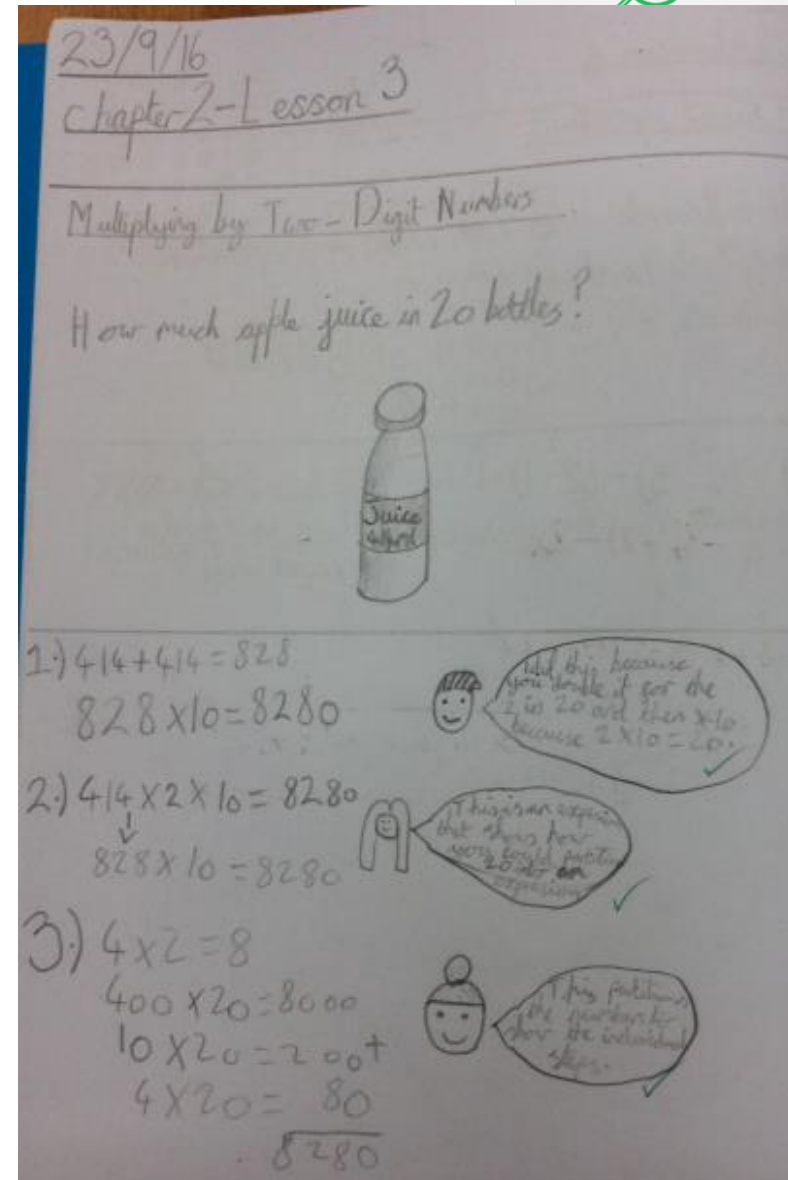 23/9/16
Chapter 2 - Lesson 3
Multiplying by Two-Digit Numbers
How much apple juice in 20 bottles?
Juice
414ml
1.) 414+414=828
828×10=8280
I did this because
you double it for the
2 in 20 and then ×10
because 2×10=20.
2.) 414×2×10=8280
828×10=8280
This is an
that shows how
you could partition
20 into an
3.) 4×2=8
400×20=8000
10×20=200+
4×20= 80
8280
This partitions
the numbers to
show the individual
steps.